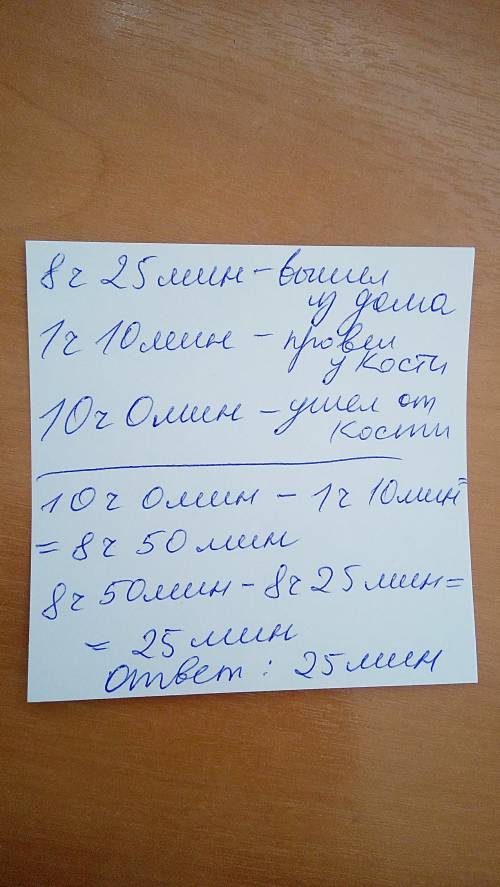 8ч 25мин – вышел
из дома
1ч 10мин – провел
у Кости
10ч 0мин – ушел от
Кости
10ч 0мин – 1ч 10мин=
= 8ч 50мин
8ч 50мин – 8ч 25мин=
= 25мин
Ответ: 25мин